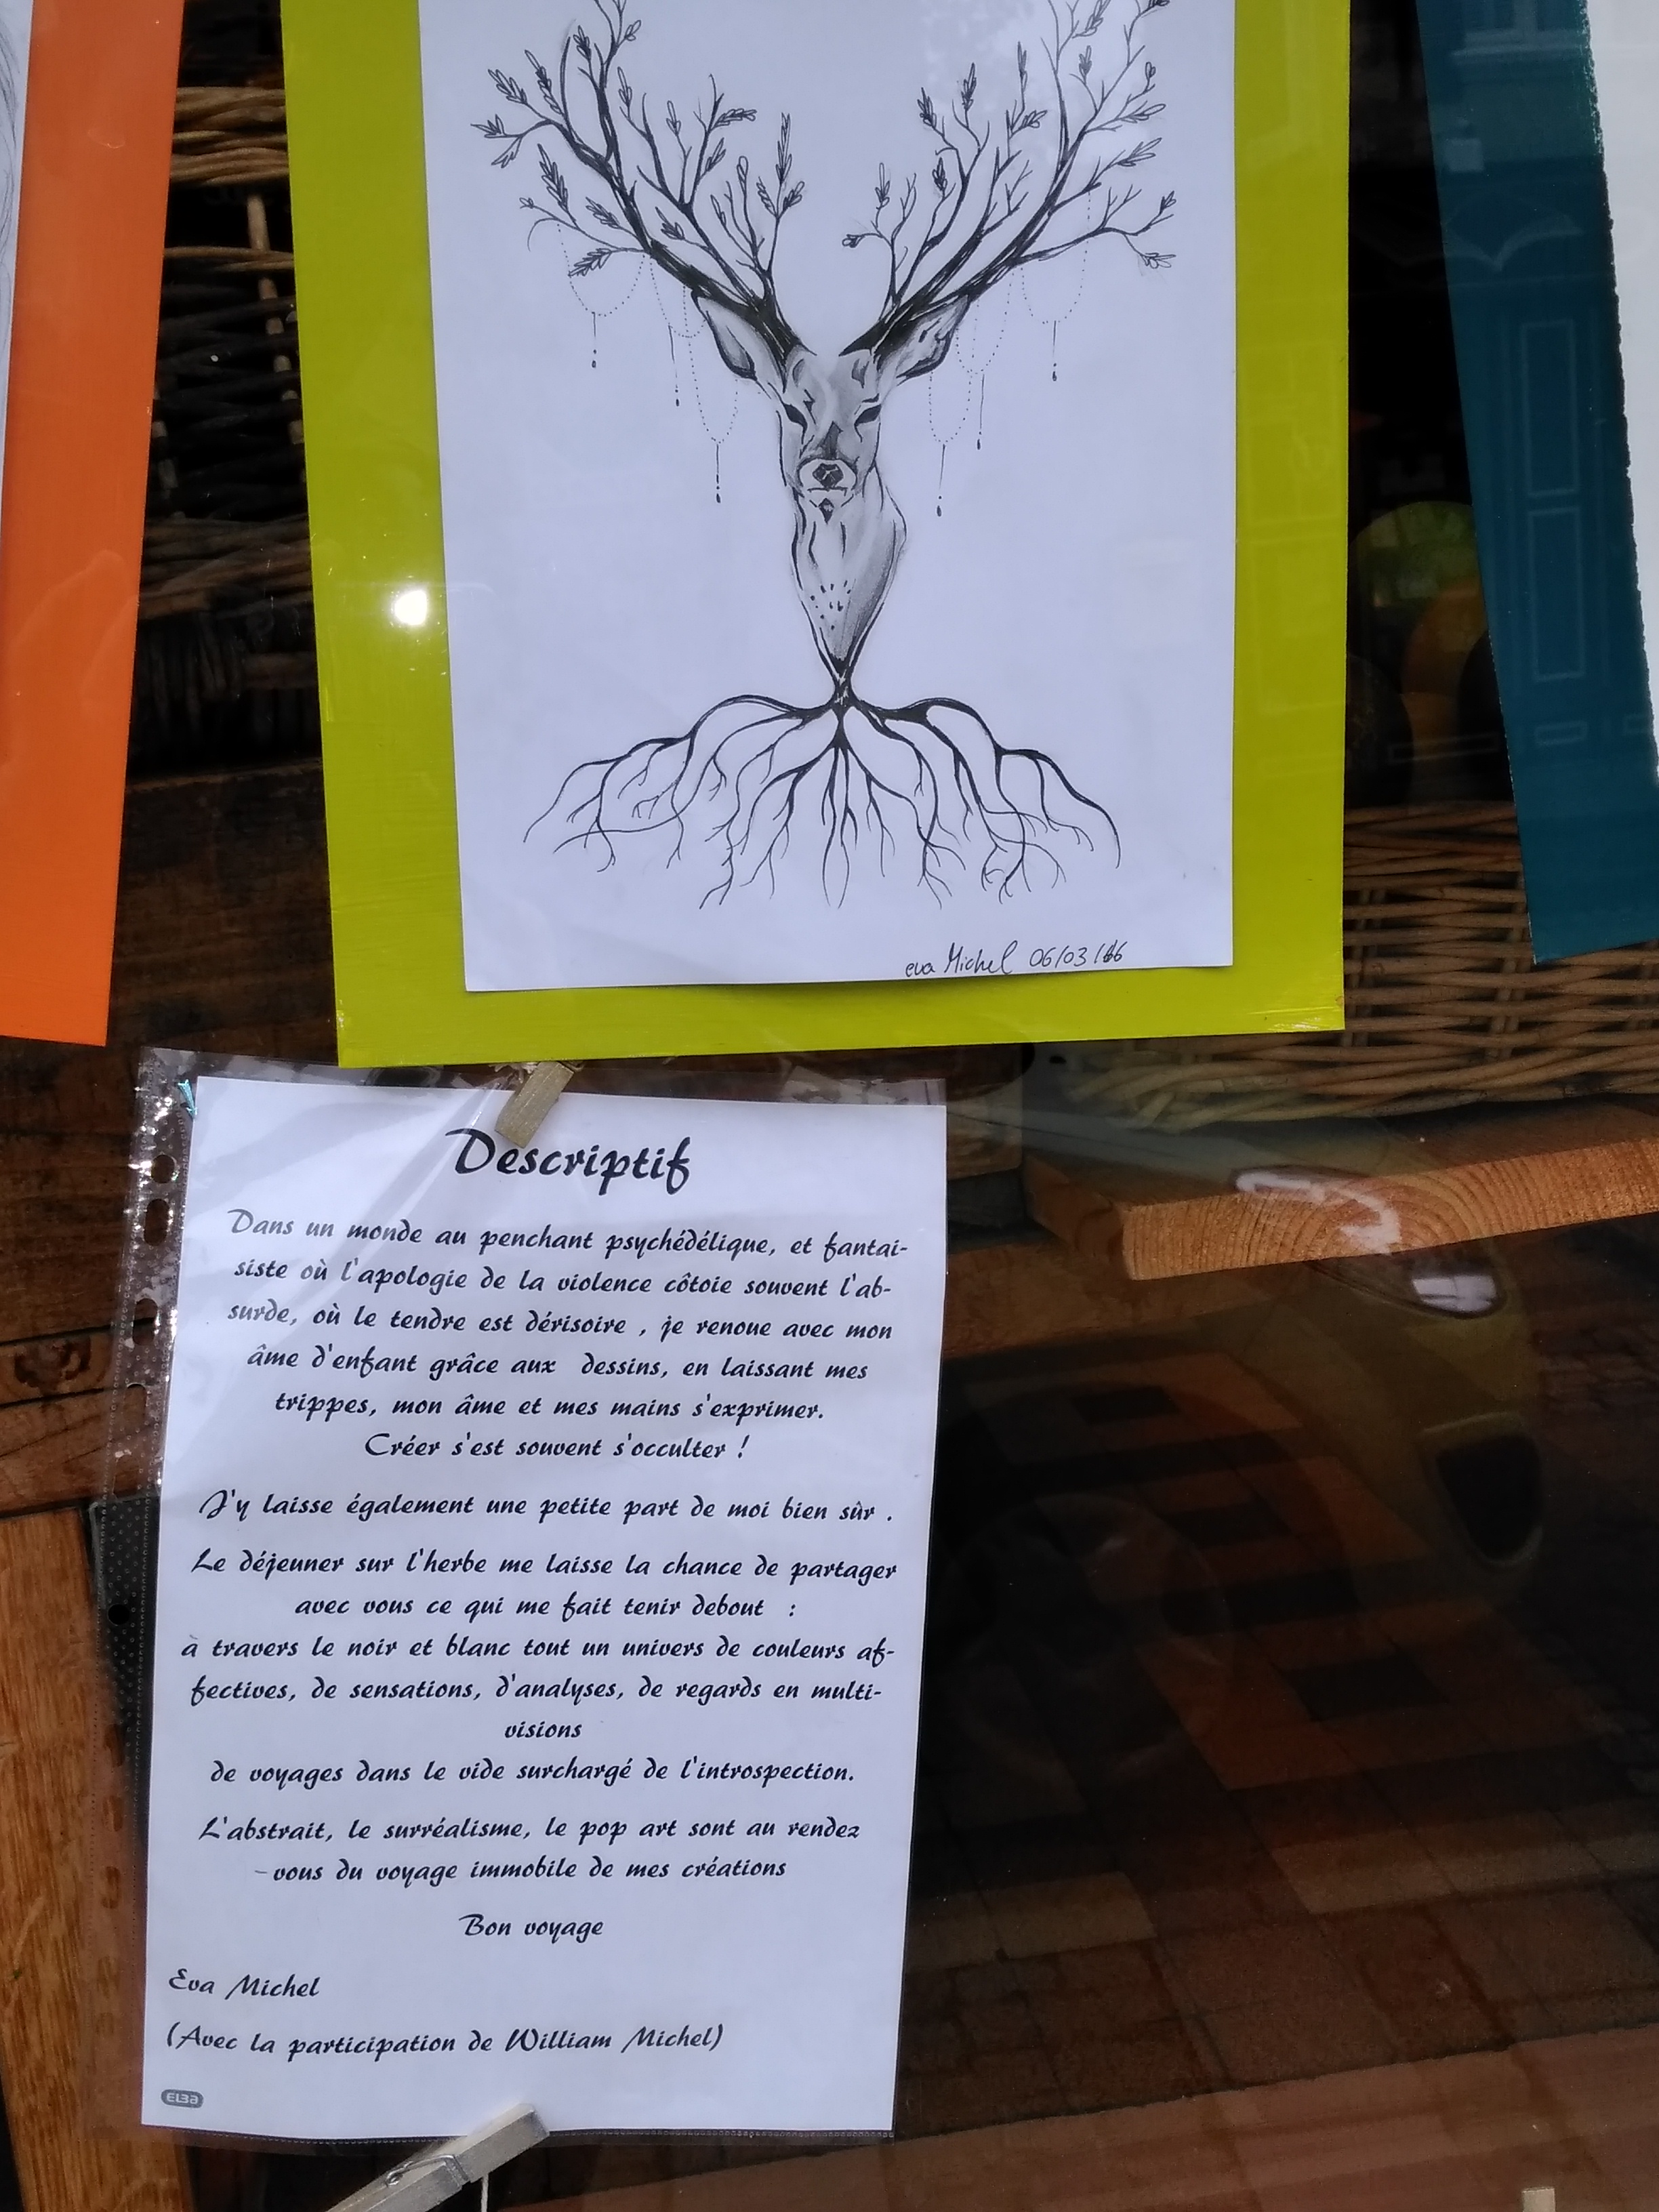 eva Michel 06/03/16
Descriptif
Dans un monde au penchant psychédélique, et fantai-
siste où l'apologie de la violence côtoie souvent l'ab-
surde, où le tendre est dérisoire , je renoue avec mon
âme d'enfant grâce aux dessins, en laissant mes
trippes, mon âme et mes mains s'exprimer.
Créer s'est souvent s'occulter !
J'y laisse également une petite part de moi bien sûr .
Le déjeuner sur l'herbe me laisse la chance de partager
avec vous ce qui me fait tenir debout :
à travers le noir et blanc tout un univers de couleurs af-
fectives, de sensations, d'analyses, de regards en multi-
visions
de voyages dans le vide surchargé de l'introspection.
L'abstrait, le surréalisme, le pop art sont au rendez
-vous du voyage immobile de mes créations
Bon voyage
Eva Michel
(Avec la participation de William Michel)
ELBA